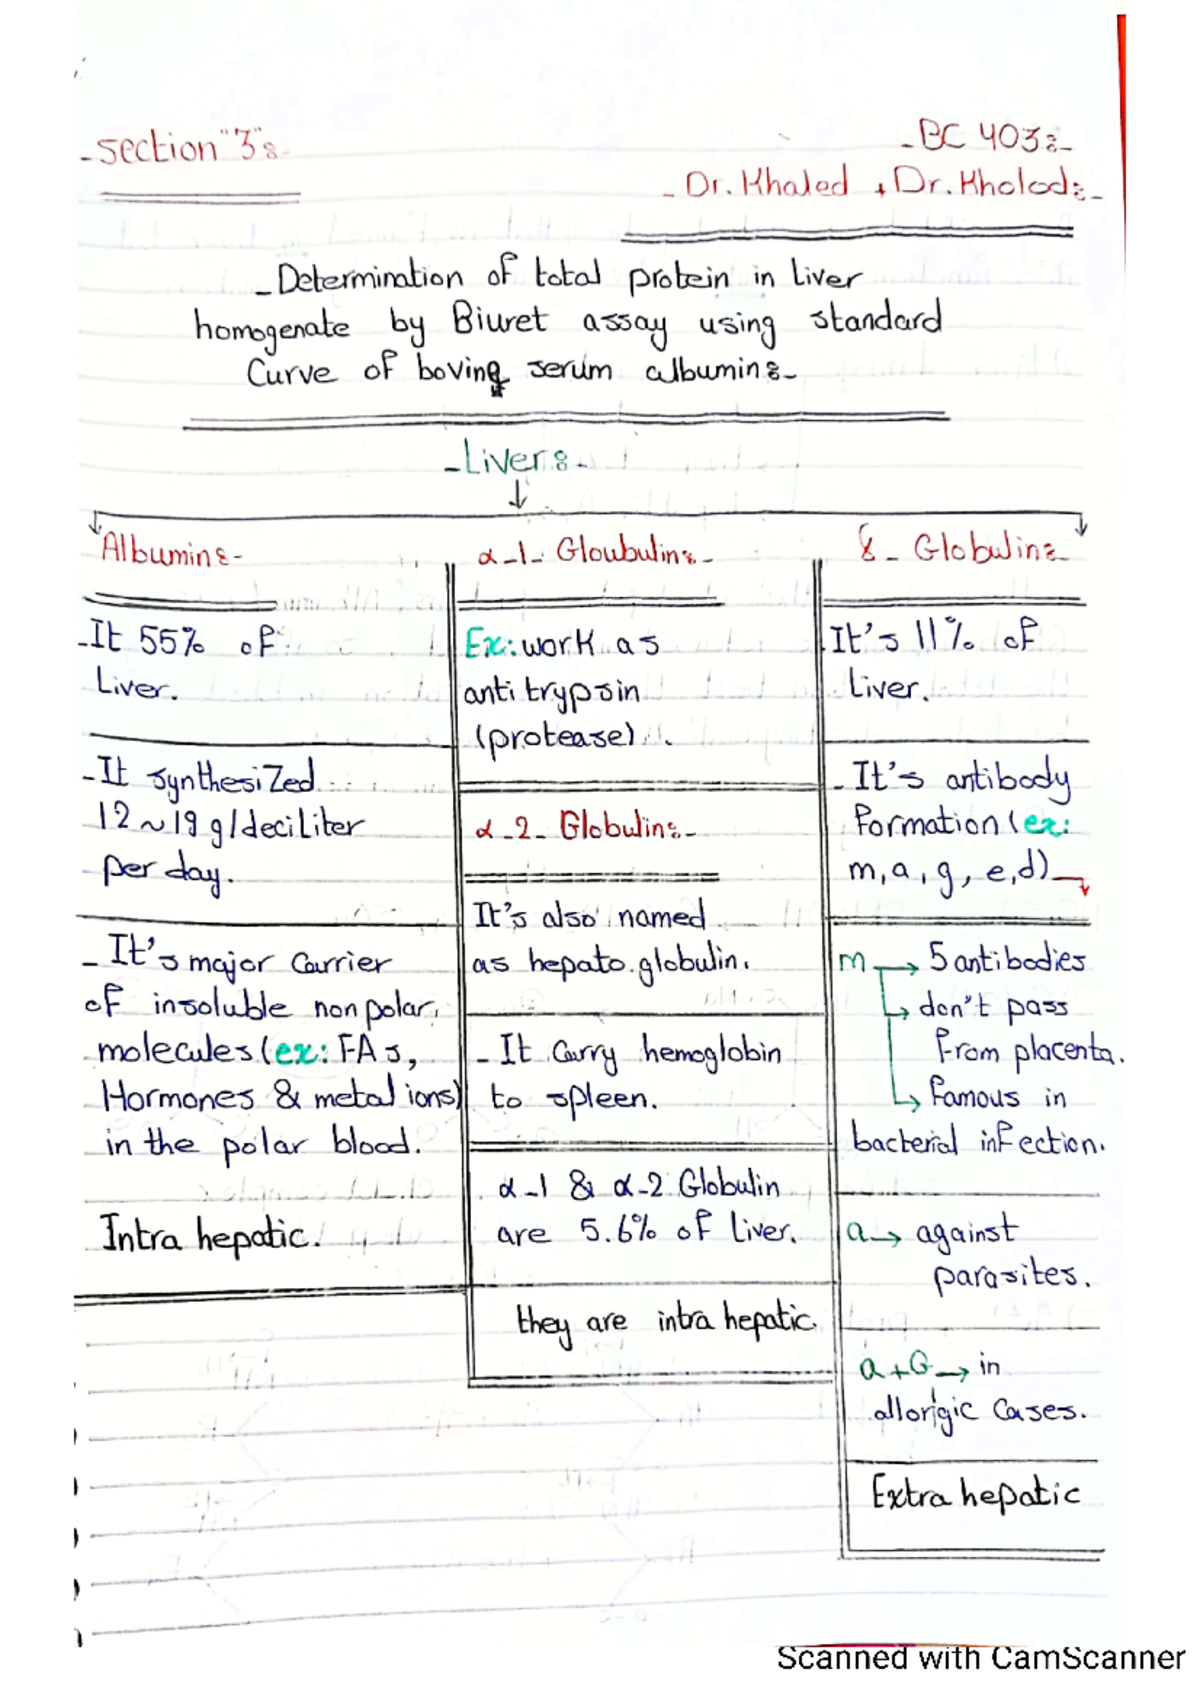 - Section "3":-
- BC 403:-
- Dr. Khaled + Dr. Kholod:-
- Determination of total protein in Liver
homogenate by Biuret assay using standard
Curve of bovine serum albumin:-
- Liver:-
Albumin:-
- It 55% of
Liver.
- It synthesized
12~19 g/deciliter
per day.
- It's major Carrier
of insoluble nonpolar
molecules (ex: FAs,
Hormones & metal ions)
in the polar blood.
Intra hepatic.
α-1- Gloubulin:-
Ex: work as
anti trypsin
(protease).
α-2- Globulin:-
It's also named
as hepato.globulin.
- It Carry hemoglobin
to spleen.
α-1 & α-2 Globulin
are 5.6% of Liver.
they are intra hepatic.
γ- Globulin:-
It's 11% of
Liver.
- It's antibody
Formation (ex:
m, a, g, e, d)
m → 5 antibodies
↳ don't pass
from placenta.
↳ Famous in
bacterial infection.
a → against
parasites.
a + G → in
allorigic Cases.
Extra hepatic
Scanned with CamScanner